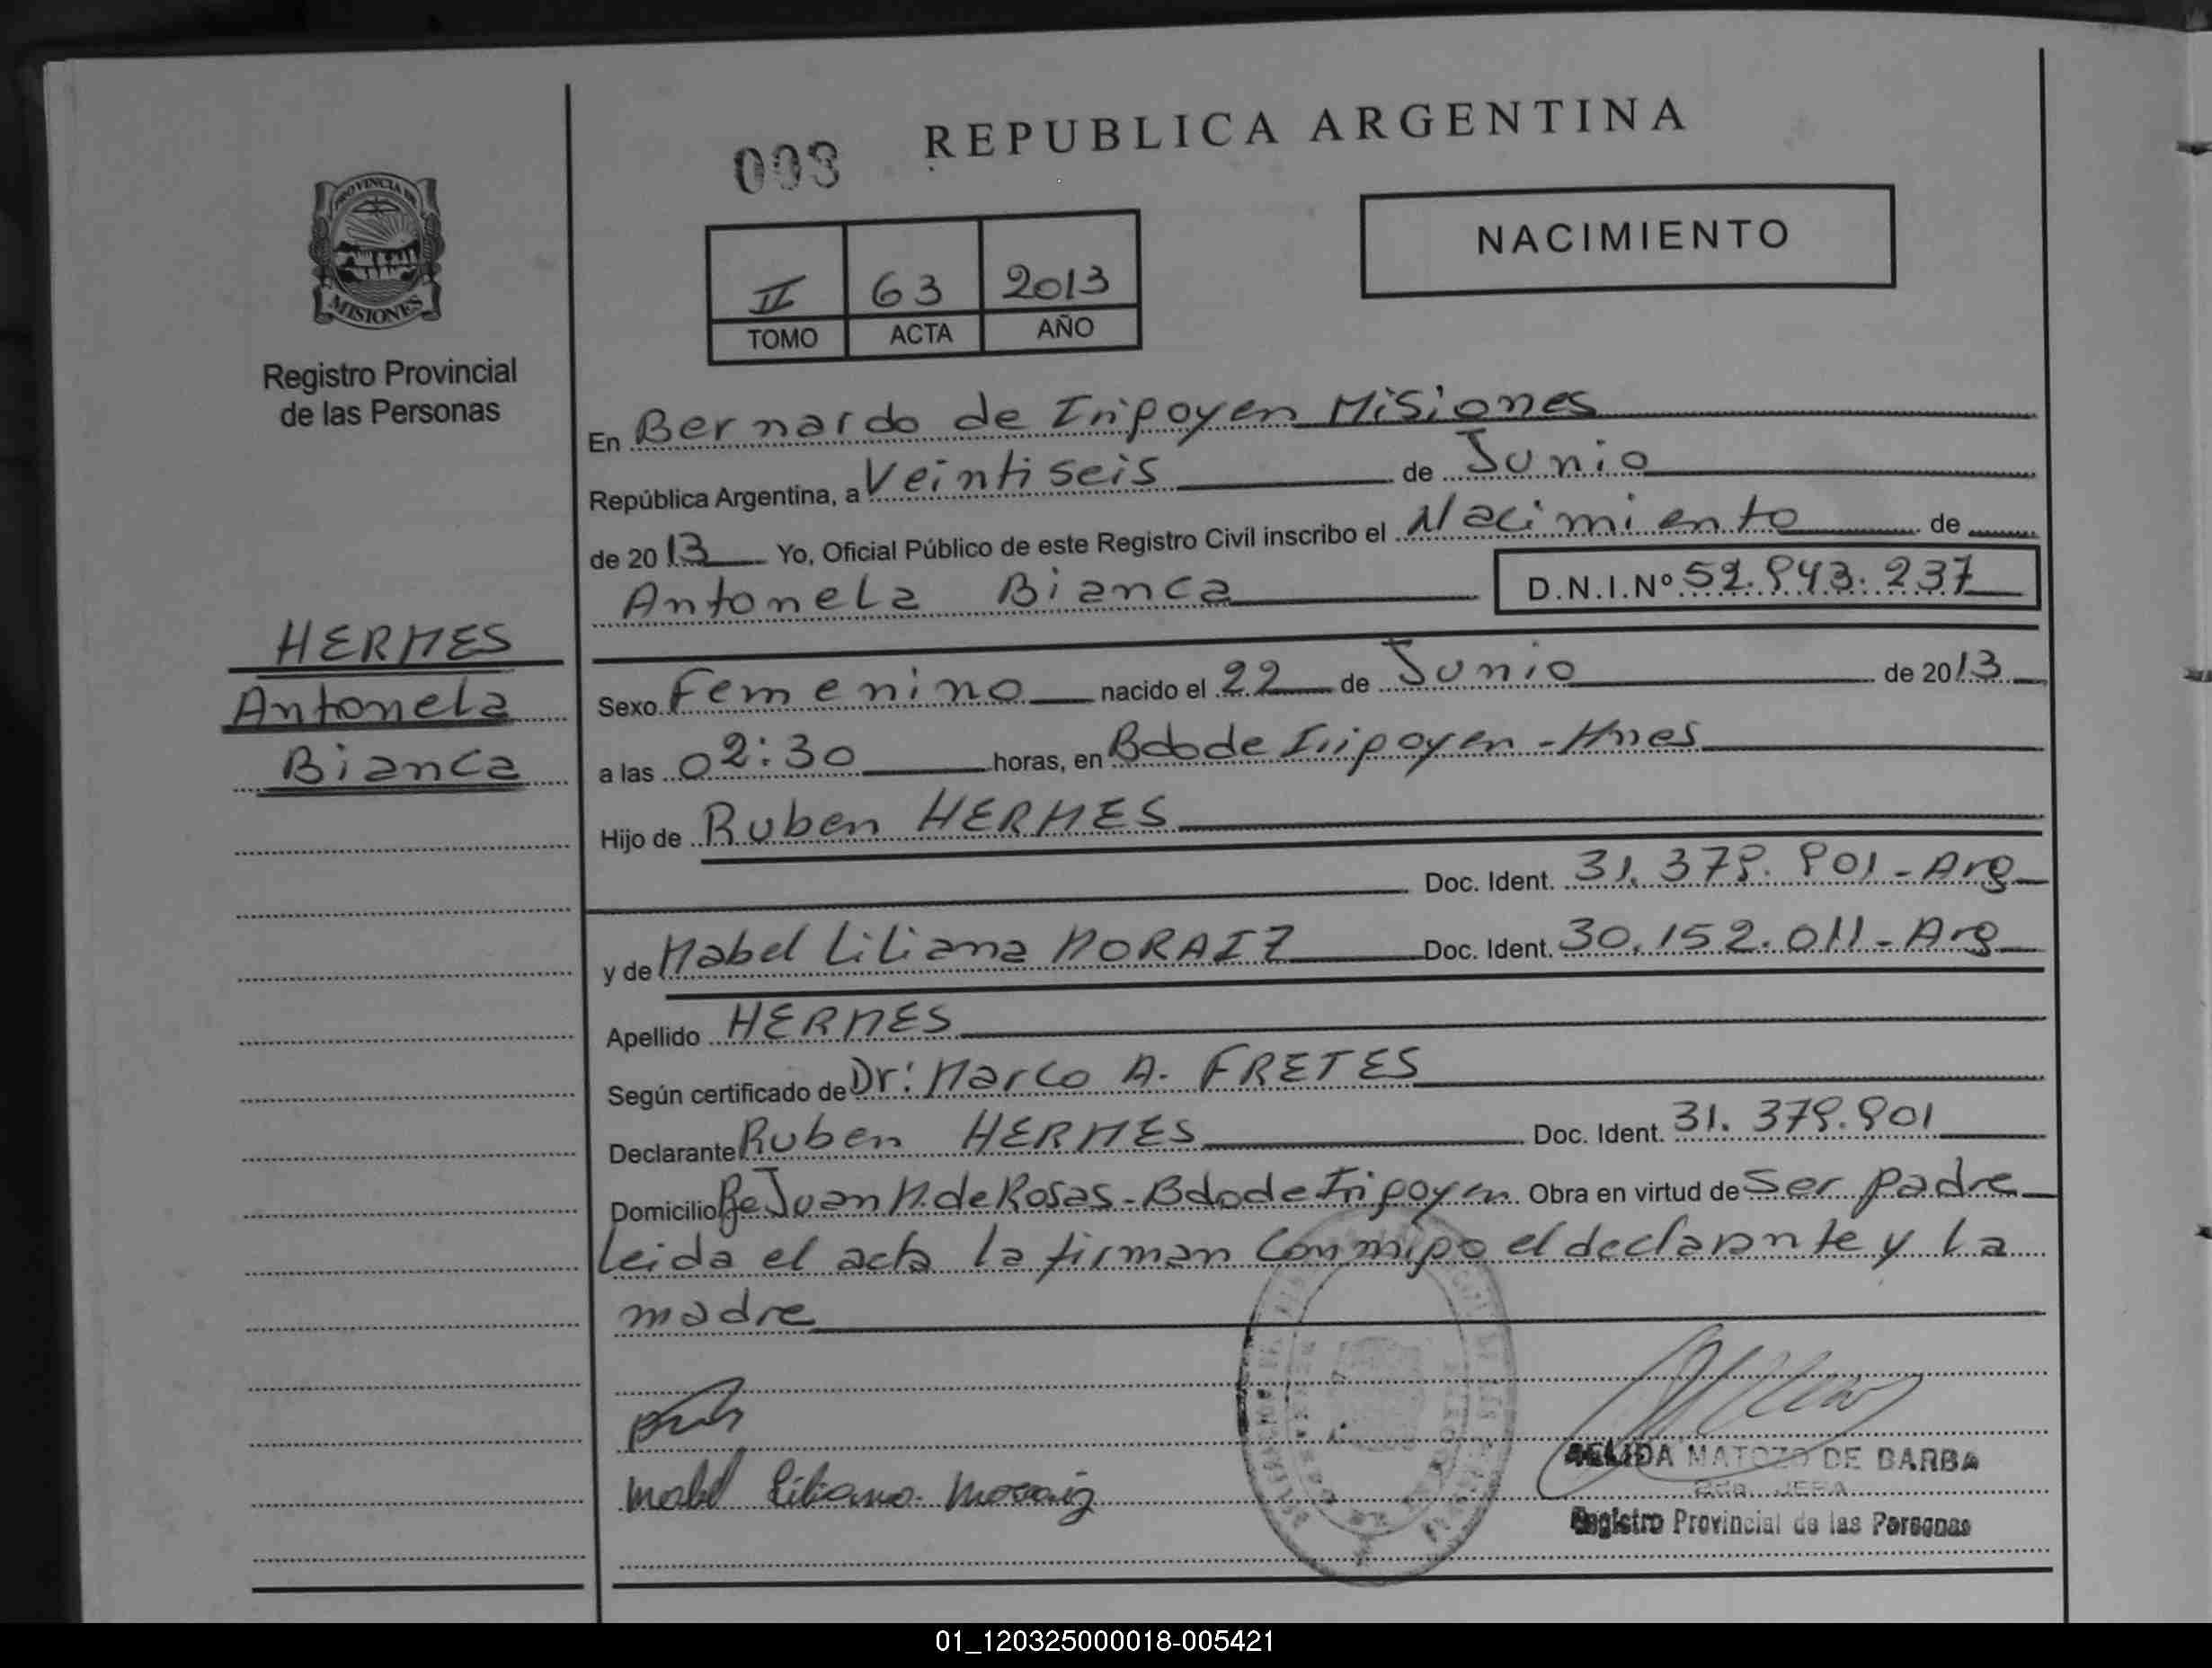 003 REPUBLICA ARGENTINA
NACIMIENTO
II 63 2013
TOMO ACTA AÑO
PROVINCIA DE
MISIONES
Registro Provincial
de las Personas
En Bernardo de Iripoyen Misiones
República Argentina, a Veintiseis de Junio
de 2013 Yo, Oficial Público de este Registro Civil inscribo el Nacimiento de
Antonela Bianca D.N.I.Nº 52.943.237
HERMES
Antonela
Bianca
Sexo Femenino nacido el 22 de Junio de 2013
a las 02:30 horas, en Bdo de Iripoyen - Mnes
Hijo de Ruben HERMES
Doc. Ident. 31.379.901 - Arg
y de Mabel Liliana MORAIZ Doc. Ident. 30.152.011 - Arg
Apellido HERMES
Según certificado de Dr: Marco A. FRETES
Declarante Ruben HERMES Doc. Ident. 31.379.901
Domicilio Juan M. de Rosas - Bdo de Iripoyen Obra en virtud de Ser padre
Leida el acta la firman conmigo el declarante y la
madre
Mabel Liliana Moraiz
NELIDA MATOZO DE BARBA
Registro Provincial de las Personas
01_120325000018-005421